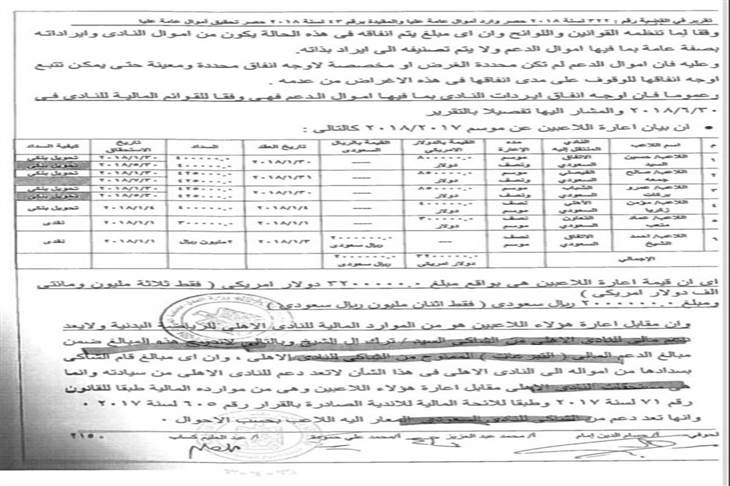 تقرير في القضية رقم : ٣٢٢ لسنة ٢٠١٨ حصر وارد اموال عامة عليا والمقيدة برقم ٤٣ لسنة ٢٠١٨ حصر تحقيق اموال عامة عليا
وفقا لما تنظمه القوانين واللوائح وان اى مبلغ يتم انفاقه فى هذه الحالة يكون من اموال النادى وايراداته
بصفة عامة بما فيها اموال الدعم ولا يتم تصنيفه الى ايراد بذاته .
وعليه فان اموال الدعم لم تكن محددة الغرض او مخصصة لاوجه انفاق محددة ومعينة حتى يمكن تتبع
اوجه انفاقها للوقوف على مدى انفاقها فى هذه الاغراض من عدمه .
وعموما فان اوجه انفاق ايردات النادى بما فيها اموال الدعم فهى وفقا للقوائم المالية للنادى فى
٢٠١٨/٦/٣٠ والمشار اليها تفصيلا بالتقرير
• ان بيان اعارة اللاعبين عن موسم ٢٠١٨/٢٠١٧ كالتالى :
م اسم اللاعب النادى المنتقل اليه مده الاعارة القيمة بالدولار الامريكى القيمة بالريال السعودى تاريخ العقد السداد تاريخ الاستحقاق كيفية السداد
١ اللاعب/ حسين السيد الاتفاق السعودى موسم ونصف ٨٠٠٠٠٠,٠ دولار ---- ٢٠١٨/١/٣٠ ٤٠٠٠٠٠,٠ ٤٠٠٠٠٠,٠ ٢٠١٨/١/٣٠ ٢٠١٨/٥/٣٠ تحويل بنكى تحويل بنكى
٢ اللاعب/ صالح جمعه الفيصلي السعودى موسم ونصف ٨٥٠٠٠٠,٠ دولار ---- ٢٠١٨/١/٣١ ٤٢٥٠٠٠,٠ ٤٢٥٠٠٠,٠ تحويل بنكى تحويل بنكى
٣ اللاعب/ عمرو بركات الشباب السعودى موسم ونصف ٨٥٠٠٠٠,٠ دولار ---- ٢٠١٨/١/٣٠ ٤٢٥٠٠٠,٠ ٤٢٥٠٠٠,٠ ٢٠١٨/١/٣٠ ٢٠١٨/٥/٣٠ تحويل بنكى تحويل بنكى
٤ اللاعب/ مؤمن زكريا الأهلى السعودى نصف موسم ٤٠٠٠٠٠,٠ دولار ---- ٢٠١٨/١/٤ ٤٠٠٠٠٠,٠ ٢٠١٨/١/٤ تحويل بنكى
اللاعب/ عماد متعب التعاون السعودى نصف موسم ٣٠٠٠٠٠,٠ دولار ---- ٢٠١٨/١/١ ٣٠٠٠٠٠,٠ ٢٠١٨/١/١ نقدى
٦ اللاعب/ احمد الشيخ الاتفاق السعودى نصف موسم ---- ٢٠٠٠٠٠٠,٠ ريال سعودى ٢٠١٨/١/٣ ٢ مليون ريال ٢٠١٨/١/١ نقدى
الاجمالى ٣٢٠٠٠٠٠,٠ دولار امريكى ٢٠٠٠٠٠٠,٠ ريال سعودى
اى ان قيمة اعارة اللاعبين هى بواقع مبلغ ٣٢٠٠٠٠٠,٠ دولار امريكى ( فقط ثلاثة مليون ومائتى
الف دولار امريكى )
ومبلغ ٢٠٠٠٠٠٠,٠ ريال سعودى ( فقط اثنان مليون ريال سعودى )
وان مقابل اعارة هؤلاء اللاعبين هو من الموارد المالية للنادى الاهلى للرياضة البدنية ولايعد
دعم مالى للنادى الاهلى من الشاكى السيد / ترك ال الشيخ وبالتالى هذه المبالغ ضمن
مبالغ الدعم المالى ( التبرعات ) الممنوح من الشاكى للنادى الاهلى ، وان اى مبالغ قام الشاكى
بسدادها من امواله الى النادى الاهلى فى هذا الشأن لاتعد دعم للنادى الاهلى من سيادته وانما
هى مستحقات النادى الاهلى مقابل اعارة هؤلاء اللاعبين وهى من موارده المالية طبقا للقانون
رقم ٧١ لسنة ٢٠١٧ وطبقا للائحة المالية للاندية الصادرة بالقرار رقم ٦٠٥ لسنة ٢٠١٧ .
وانها تعد دعم من الشاكى للنادى السعودى المعار اليه اللاعب بحسب الاحوال .
أ/ حسام الدين إمام أ/ محمد عبد العزيز أ/ محمد على أ/ عبد الحليم كساب